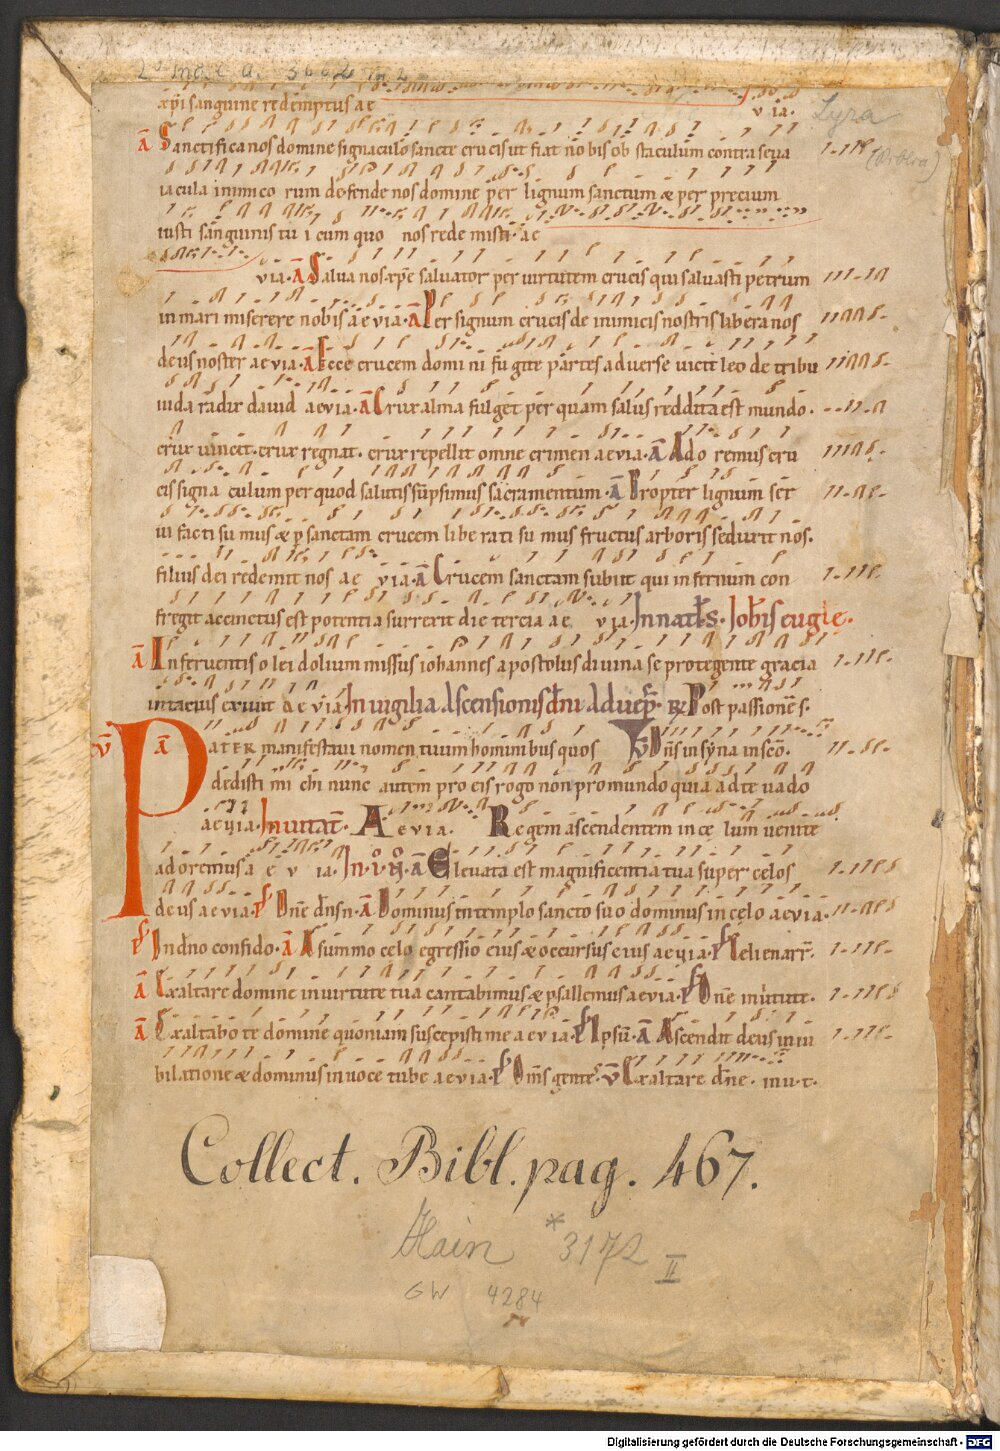 2° Inc. c. a. 3662 m 2
xp̄i sanguine redemptus ae
v ia.
Lyra
(Biblia)
ā Sanctifica nos domine signaculo sancte crucis ut fiat nobis obstaculum contra seva
iacula inimico rum defende nos domine per lignum sanctum & per precium
iusti sanguinis tu i cum quo nos rede misti. ae
via. ā Salva nos xp̄e salvator per virtutem crucis qui salvasti petrum
in mari miserere nobis ae via. ā Per signum crucis de inimicis nostris libera nos
deus noster ae via. ā Ecce crucem domi ni fu gite partes adverse vicit leo de tribu
iuda radix david aevia. ā Crux alma fulget per quam salus reddita est mundo.
crux vincit. crux regnat. crux repellit omne crimen aevia. ā Ado remus cru
cis signa culum per quod salutis sūpsimus sacramentum. ā Propter lignum ser
vi facti su mus & p sanctam crucem libe rati su mus fructus arboris seduxit nos.
filius dei redemit nos ae via. ā Crucem sanctam subiit qui infernum con
fregit accinctus est potentia surrexit die tercia ae via. In nat̄ S. Joh̄is eūgle.
ā In ferventis o lei dolium missus iohannes apostolus divina se protegente gracia
intactus exivit ae via. In vigilia Ascensionis dn̄i Ad vesp̄. R Post passionē s.
ev̄ ā PATER manifestavi nomen tuum hominibus quos v̄ Dn̄s in syna in scō.
dedisti mi chi nunc autem pro eis rogo non pro mundo quia ad te vado
aevia. Invitat̄. Aevia. Regem ascendentem in ce lum venite
adoremus a e v ia. In. i. n̄. ā Elevata est magnificentia tua super celos
deus aevia. p̄s Dn̄e dn̄s n̄. ā Dominus in templo sancto suo dominus in celo aevia.
p̄s In dn̄o confido. ā A summo celo egressio eius & occursus eius aevia. p̄s Celi enarr̄.
ā Exaltare domine in virtute tua cantabimus & psallemus aevia. p̄s Dn̄e in virtute.
ā Exaltabo te domine quoniam suscepisti me aevia. p̄s Ipsum. ā Ascendit deus in iu
bilatione & dominus in voce tube aevia. p̄s Om̄s gentes. v̄ Exaltare dn̄e. in v. t.
Collect. Bibl. pag. 467.
Hain *3172 II
GW 4284
Digitalisierung gefördert durch die Deutsche Forschungsgemeinschaft - DFG